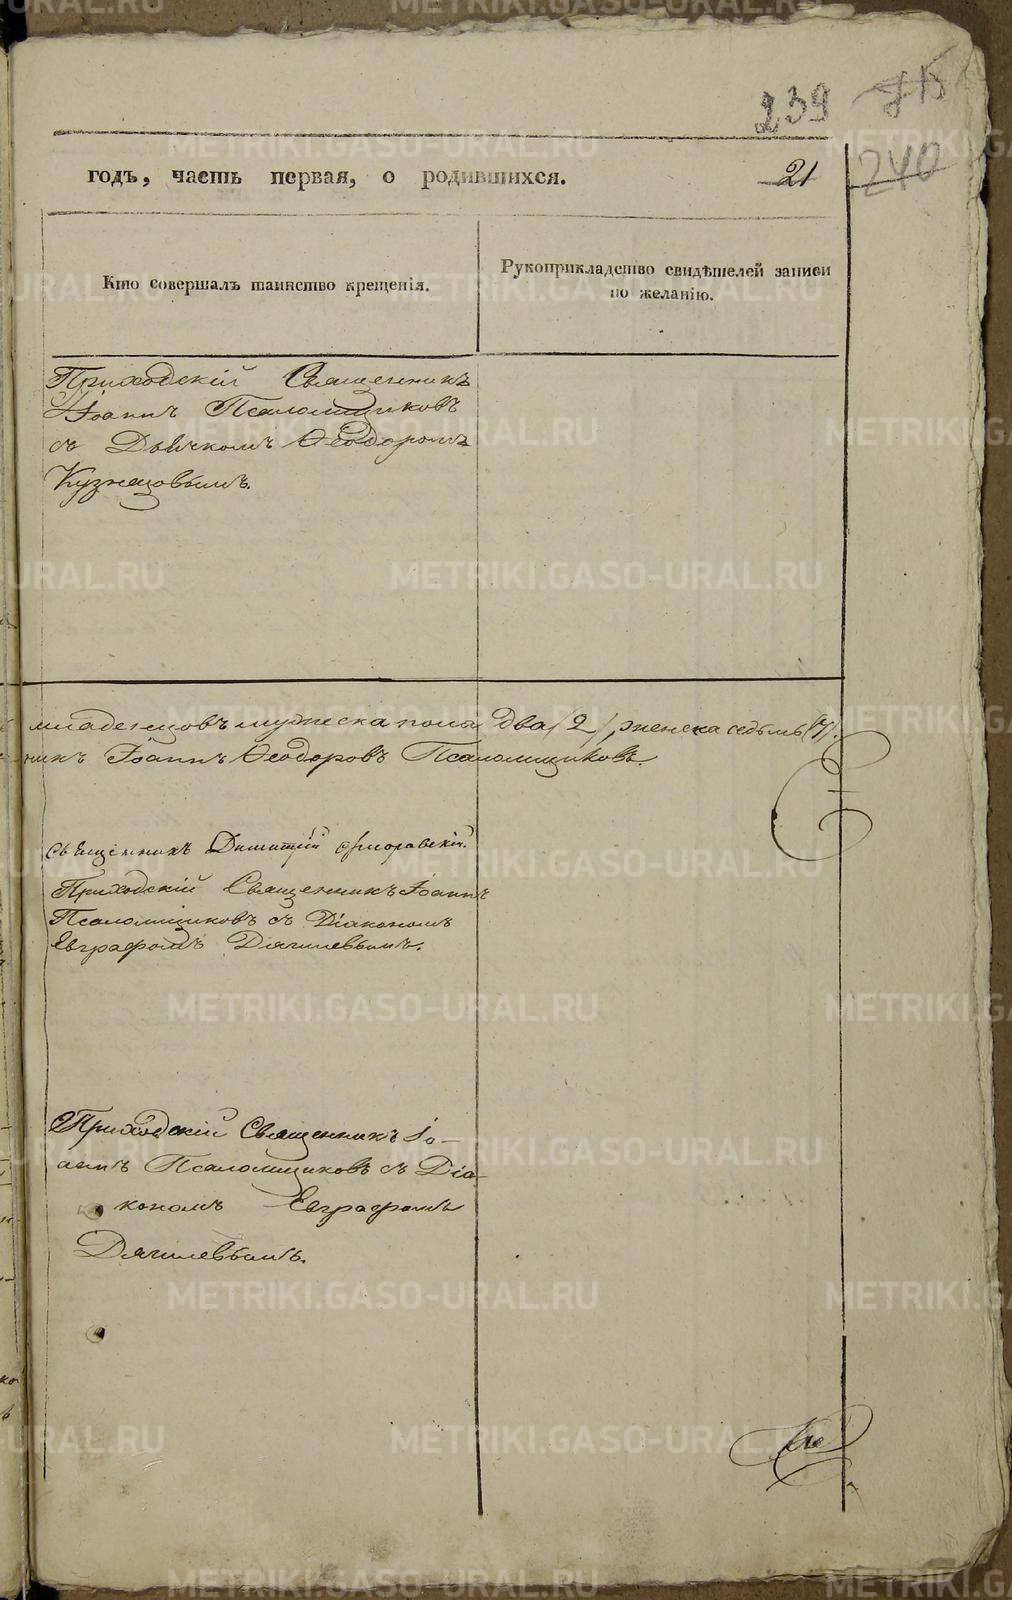 239
240
годъ, часть первая, о родившихся.
21
Кто совершалъ таинство крещенія.
Рукоприкладство свидѣтелей записи
по желанію.
Приходскій Священникъ
Іоаннъ Псаломщиковъ
съ Дьячкомъ Ѳеодоромъ
Кузнецовымъ.
младенцовъ мужеска пола два (2), женска седьмь (7).
Іоаннъ Ѳеодоровъ Псаломщиковъ.
Священникъ Димитрій
Приходскій Священникъ Іоаннъ
Псаломщиковъ съ Діакономъ
Евграфомъ Дягилевымъ.
Приходскій Священникъ Іо-
аннъ Псаломщиковъ съ Діа-
кономъ Евграфомъ
Дягилевымъ.
METRIKI.GASO-URAL.RU